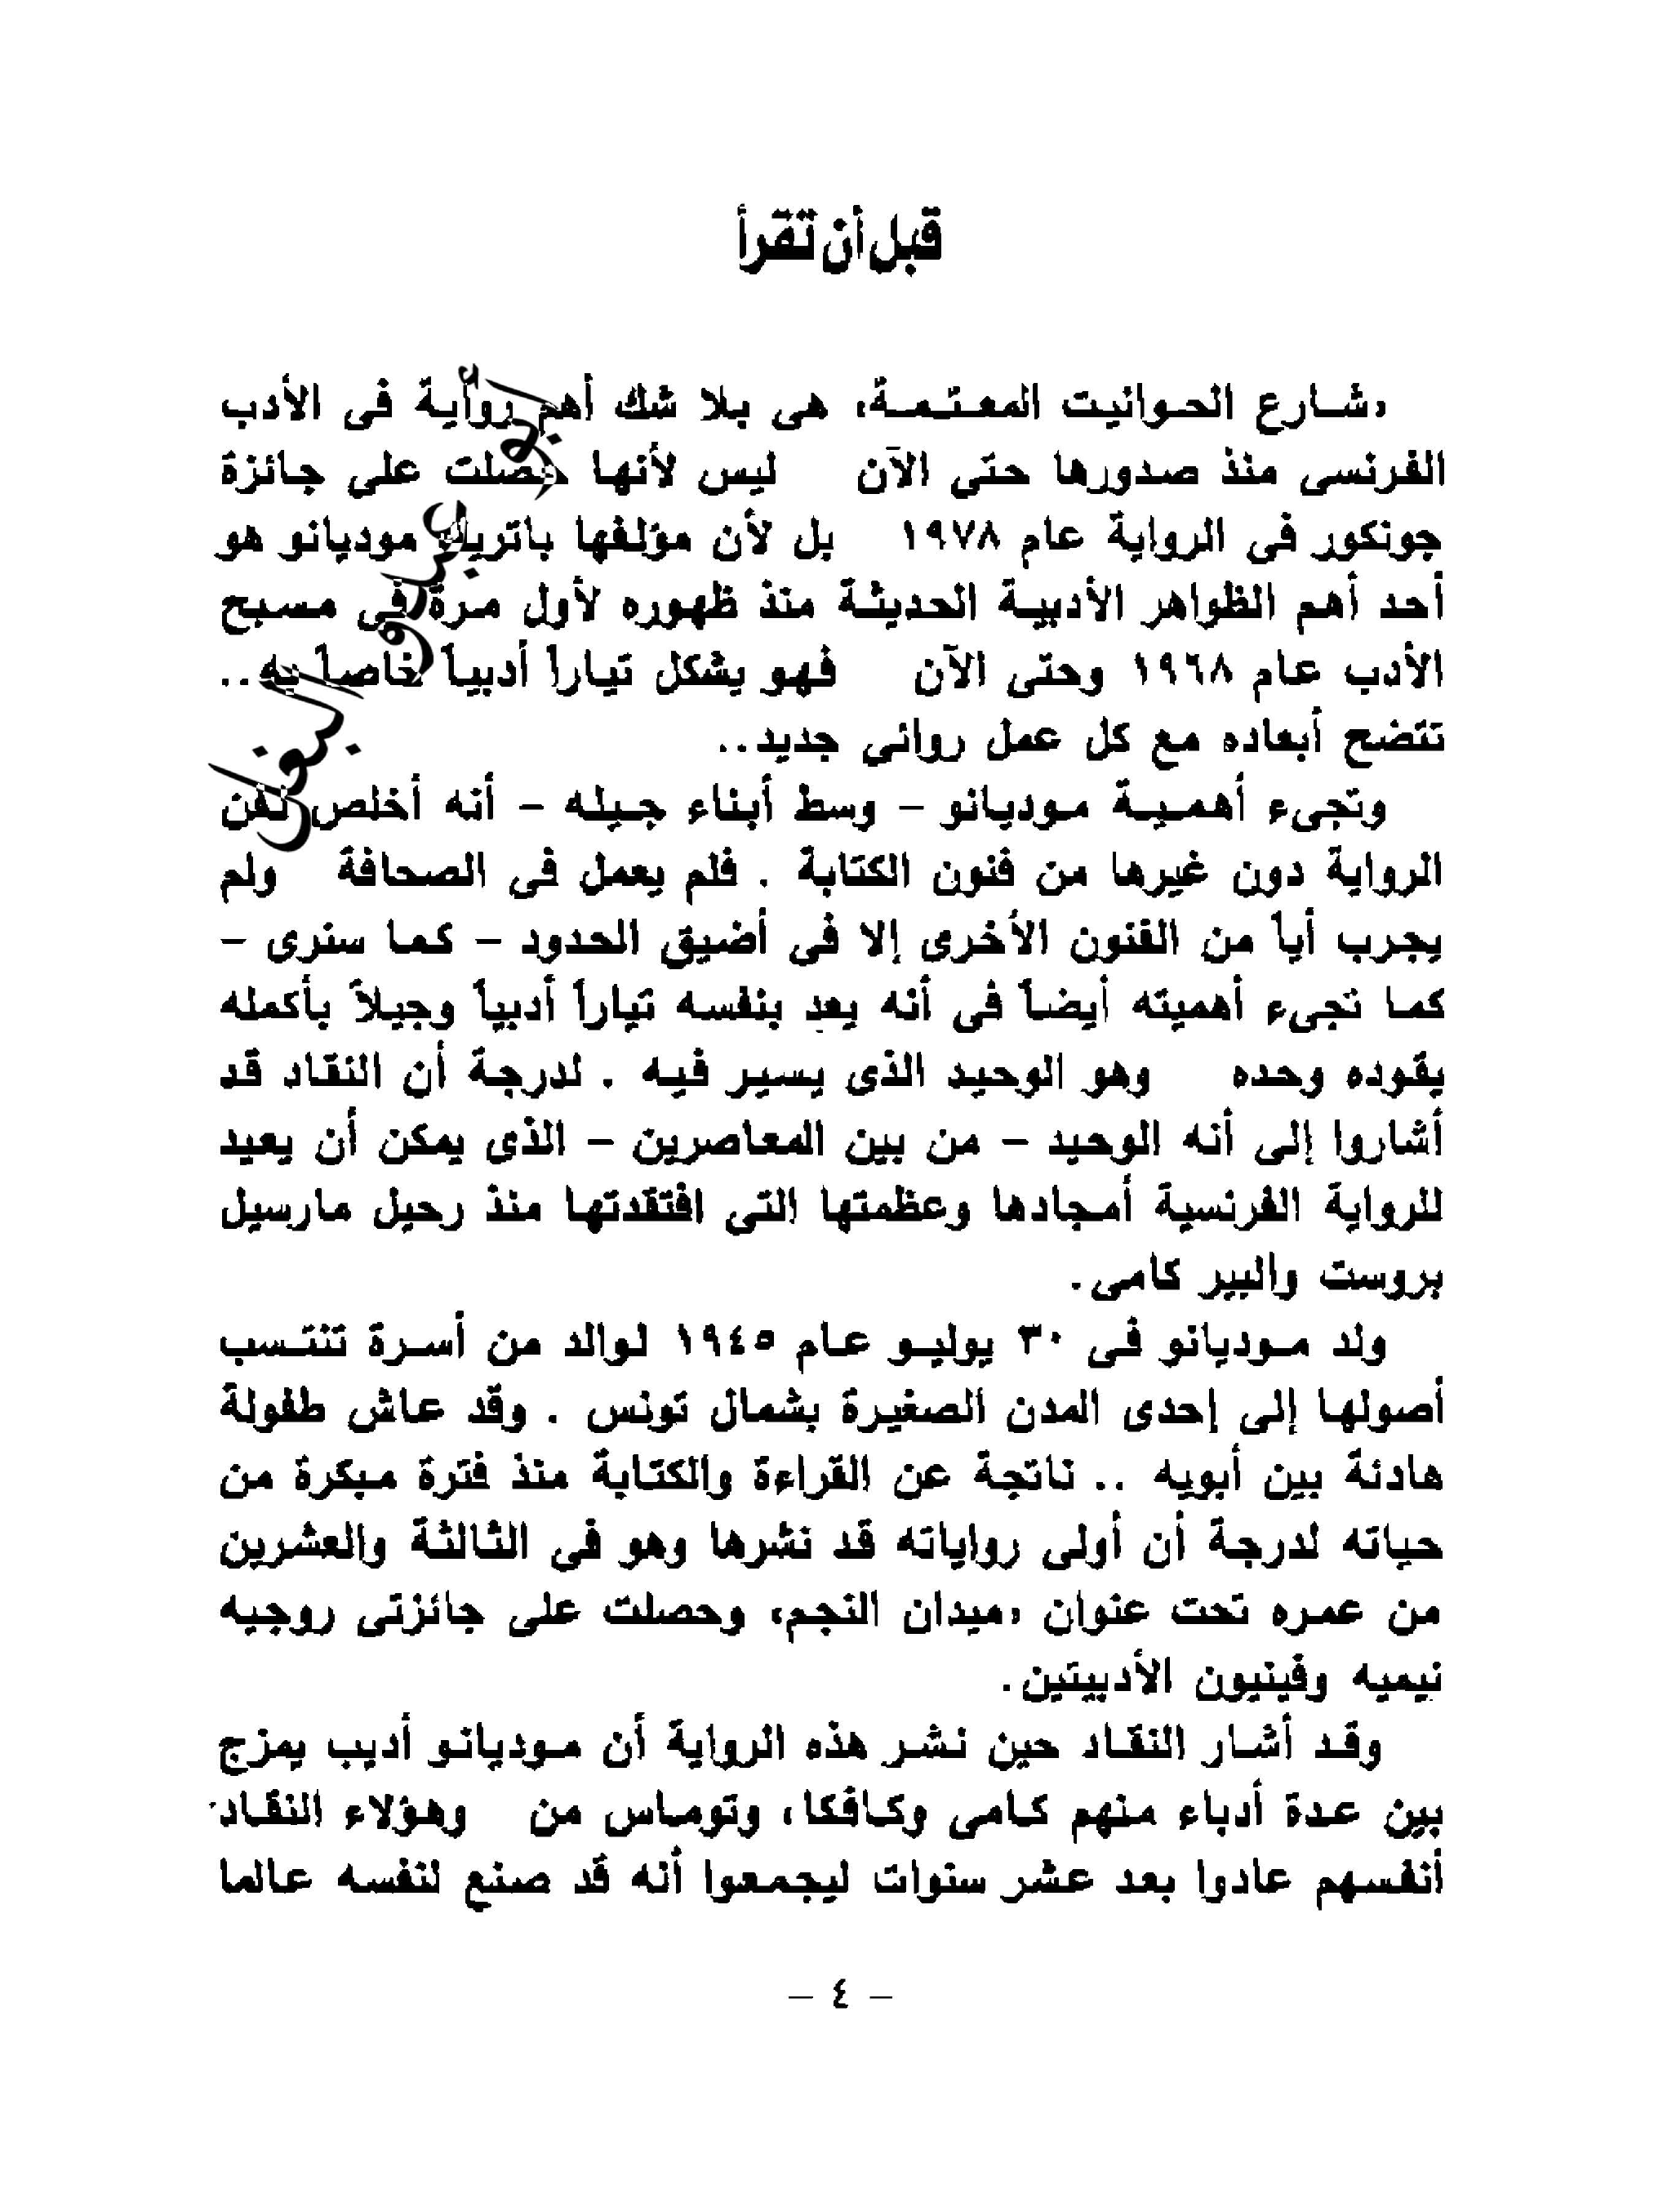 قبل أن تقرأ
«شارع الحوانيت المعتمة» هى بلا شك أهم رواية فى الأدب
الفرنسى منذ صدورها حتى الآن ليس لأنها حصلت على جائزة
جونكور فى الرواية عام ١٩٧٨ بل لأن مؤلفها باتريك موديانو هو
أحد أهم الظواهر الأدبية الحديثة منذ ظهوره لأول مرة فى مسبح
الأدب عام ١٩٦٨ وحتى الآن فهو يشكل تياراً أدبياً خاصاً به..
تتضح أبعاده مع كل عمل روائى جديد..
وتجىء أهمية موديانو – وسط أبناء جيله – أنه أخلص لفن
الرواية دون غيرها من فنون الكتابة . فلم يعمل فى الصحافة ولم
يجرب أياً من الفنون الأخرى إلا فى أضيق الحدود – كما سنرى –
كما تجىء أهميته أيضاً فى أنه يعد بنفسه تياراً أدبياً وجيلاً بأكمله
يقوده وحده وهو الوحيد الذى يسير فيه . لدرجة أن النقاد قد
أشاروا إلى أنه الوحيد – من بين المعاصرين – الذى يمكن أن يعيد
للرواية الفرنسية أمجادها وعظمتها التى افتقدتها منذ رحيل مارسيل
بروست والبير كامى.
ولد موديانو فى ٣٠ يوليو عام ١٩٤٥ لوالد من أسرة تنتسب
أصولها إلى إحدى المدن الصغيرة بشمال تونس . وقد عاش طفولة
هادئة بين أبويه .. ناتجة عن القراءة والكتابة منذ فترة مبكرة من
حياته لدرجة أن أولى رواياته قد نشرها وهو فى الثالثة والعشرين
من عمره تحت عنوان «ميدان النجم» وحصلت على جائزتى روجيه
نيميه وفينيون الأدبيتين.
وقد أشار النقاد حين نشر هذه الرواية أن موديانو أديب يمزج
بين عدة أدباء منهم كامى وكافكا، وتوماس من وهؤلاء النقاد
أنفسهم عادوا بعد عشر سنوات ليجمعوا أنه قد صنع لنفسه عالما
– ٤ –
أبو عبدو البغل